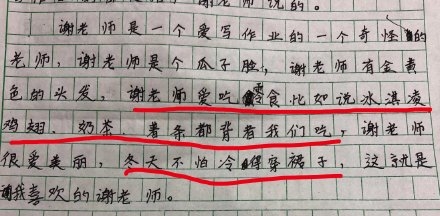 谢老师说的。
谢老师是一个爱写作业的一个奇怪的
老师，谢老师是个瓜子脸，谢老师有金黄
色的头发，谢老师爱吃零食比如说冰淇凌
鸡翅、奶茶、薯条都背着我们吃，谢老师
很爱美丽，冬天不怕冷得穿裙子，这就是
我喜欢的谢老师。